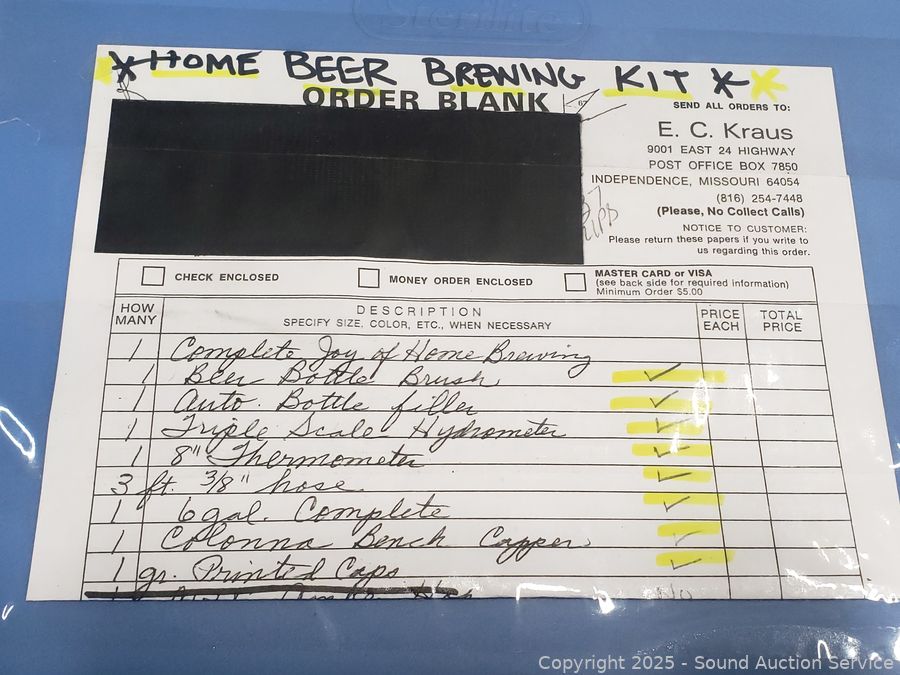 Sterilite
*HOME BEER BREWING KIT **
ORDER BLANK
SEND ALL ORDERS TO:
E. C. Kraus
9001 EAST 24 HIGHWAY
POST OFFICE BOX 7850
INDEPENDENCE, MISSOURI 64054
(816) 254-7448
(Please, No Collect Calls)
NOTICE TO CUSTOMER:
Please return these papers if you write to
us regarding this order.
CHECK ENCLOSED
MONEY ORDER ENCLOSED
MASTER CARD or VISA
(see back side for required information)
Minimum Order $5.00
HOW MANY
DESCRIPTION
SPECIFY SIZE, COLOR, ETC., WHEN NECESSARY
PRICE EACH
TOTAL PRICE
1 Complete Joy of Home Brewing
1 Beer Bottle Brush ✓
1 Auto. Bottle filler ✓
1 Triple Scale Hydrometer ✓
1 8" Thermometer ✓
3 ft. 3/8" hose ✓
1 6 gal. Complete ✓
1 Colonna Bench Capper ✓
1 gr. Printed Caps ✓
NO
Copyright 2025 - Sound Auction Service